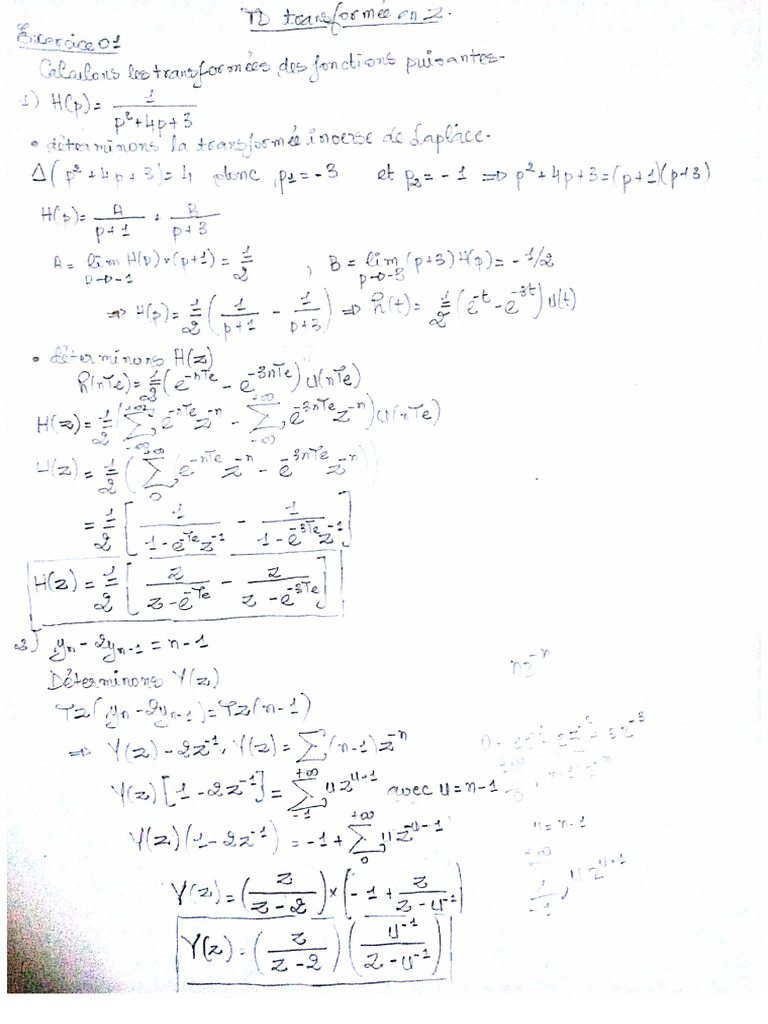 TD transformée en Z.
Exercice 01
Calculons les transformées des fonctions puisantes.
1) H(p) = 1/(p²+4p+3)
• déterminons la transformée inverse de Laplace.
Δ(p²+4p+3)=4 donc p1=-3 et p2=-1 ⇒ p²+4p+3=(p+1)(p+3)
H(p) = A/(p+1) + B/(p+3)
A = lim p→-1 H(p)×(p+1) = 1/2 , B = lim p→-3 (p+3)H(p) = -1/2
⇒ H(p) = 1/2 (1/(p+1) - 1/(p+3)) ⇒ h(t) = 1/2 (e^-t - e^-3t) u(t)
• déterminons H(z)
h(nTe) = 1/2 (e^-nTe - e^-3nTe) u(nTe)
H(z) = 1/2 (∑_{-∞}^{+∞} e^-nTe z^-n - ∑_{-∞}^{+∞} e^-3nTe z^-n) u(nTe)
H(z) = 1/2 (∑_0^{+∞} (e^-nTe z^-n - e^-3nTe z^-n))
= 1/2 [1/(1-e^-Te z^-1) - 1/(1-e^-3Te z^-1)]
H(z) = 1/2 [z/(z-e^-Te) - z/(z-e^-3Te)]
2) yn - 2yn-1 = n-1
nz^-n
Déterminons Y(z)
Tz(yn-2yn-1) = Tz(n-1)
⇒ Y(z) - 2z^-1, Y(z) = ∑(n-1)z^-n
Y(z)[1-2z^-1] = ∑_{-1}^{+∞} u z^{u+1} avec u=n-1
u=n-1
Y(z)(1-2z^-1) = -1 + ∑_0^{+∞} u z^{-u-1}
∑_{-1}^{+∞} u z^{u+1}
Y(z) = (z/(z-2)) × (-1 + z/(z-u^-1))
Y(z) = (z/(z-2)) (u^-1/(z-u^-1))